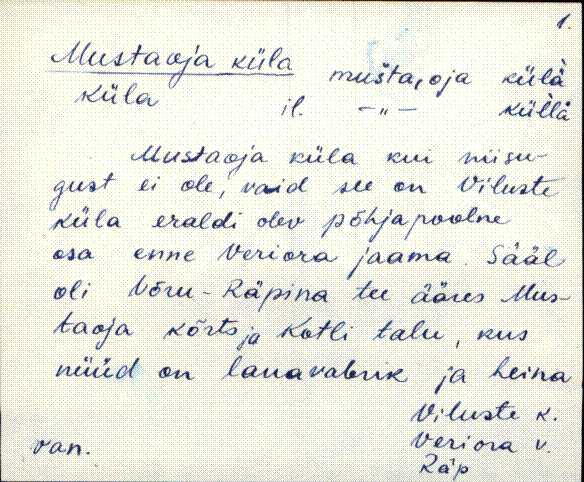 1.
Mustaoja küla mušta,oja külà
küla il. —„— küllà
Mustaoja küla kui niisu-
gust ei ole, vaid see on Viluste
küla eraldi olev põhjapoolne
osa enne Veriora jaama. Sääl
oli Võru-Räpina tee ääres Mus-
taoja kõrts ja Kotli talu, kus
nüüd on lauavabrik ja heina
Viluste k.
van. Veriora v.
Räp